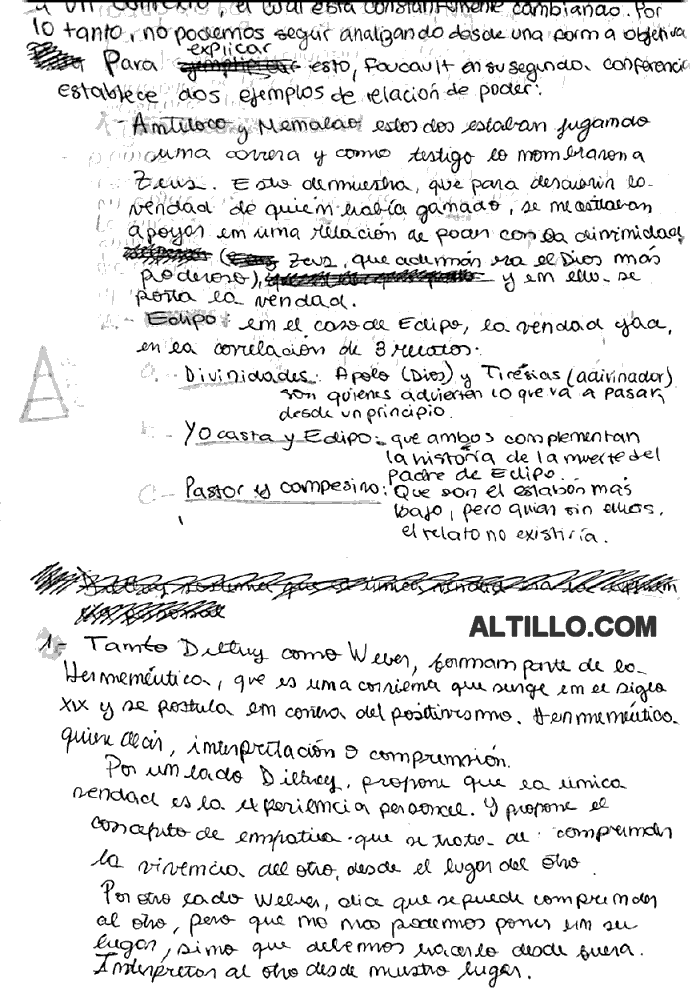 a un contexto, el cual esta constantemente cambiando. Por
lo tanto, no podemos seguir analizando desde una forma objetiva
Para explicar esto, Foucault en su segunda conferencia
establece dos ejemplos de relación de poder:
- Antiloco y Menalao estos dos estaban jugando
una correra y como testigo lo nombraron a
Zeus. Esto demuestra, que para descubrir la
verdad de quién había ganado, se necesitaban
apoyar em uma relación de poder con la divinidad,
(Zeus, que además era el Dios más
poderoso), y em ello se
porta la verdad.
- Edipo: em el caso de Edipo, la verdad yace,
en la correlación de 3 relatos.
a - Divinidades: Apolo (Dios) y Tiresias (adivinador)
son quienes advierten lo que va a pasar,
desde un principio.
- Yocasta y Edipo: que ambos complementan
la historia de la muerte del
Padre de Edipo.
C - Pastor y campesino: Que son el eslabón más
bajo, pero quien sin ellos,
el relato no existiría.
A
ALTILLO.COM
1- Tanto Dilthey como Weber, forman parte de la
Hermenéutica, que es uma corriente que surge em el siglo
XIX y se postula em contra del positivismo. Hermenéutica
quiere decir, interpretación o comprensión.
Por un lado Dilthey, propone que la única
verdad es la experiencia personal. Y propone el
concepto de empatica que se trata de comprender
la vivencia del otro, desde el lugar del otro.
Por otro lado Weber, dice que se puede comprender
al otro, pero que no nos podemos poner em su
lugar, simo que debemos hacerlo desde fuera.
Interpretar al otro desde nuestro lugar.